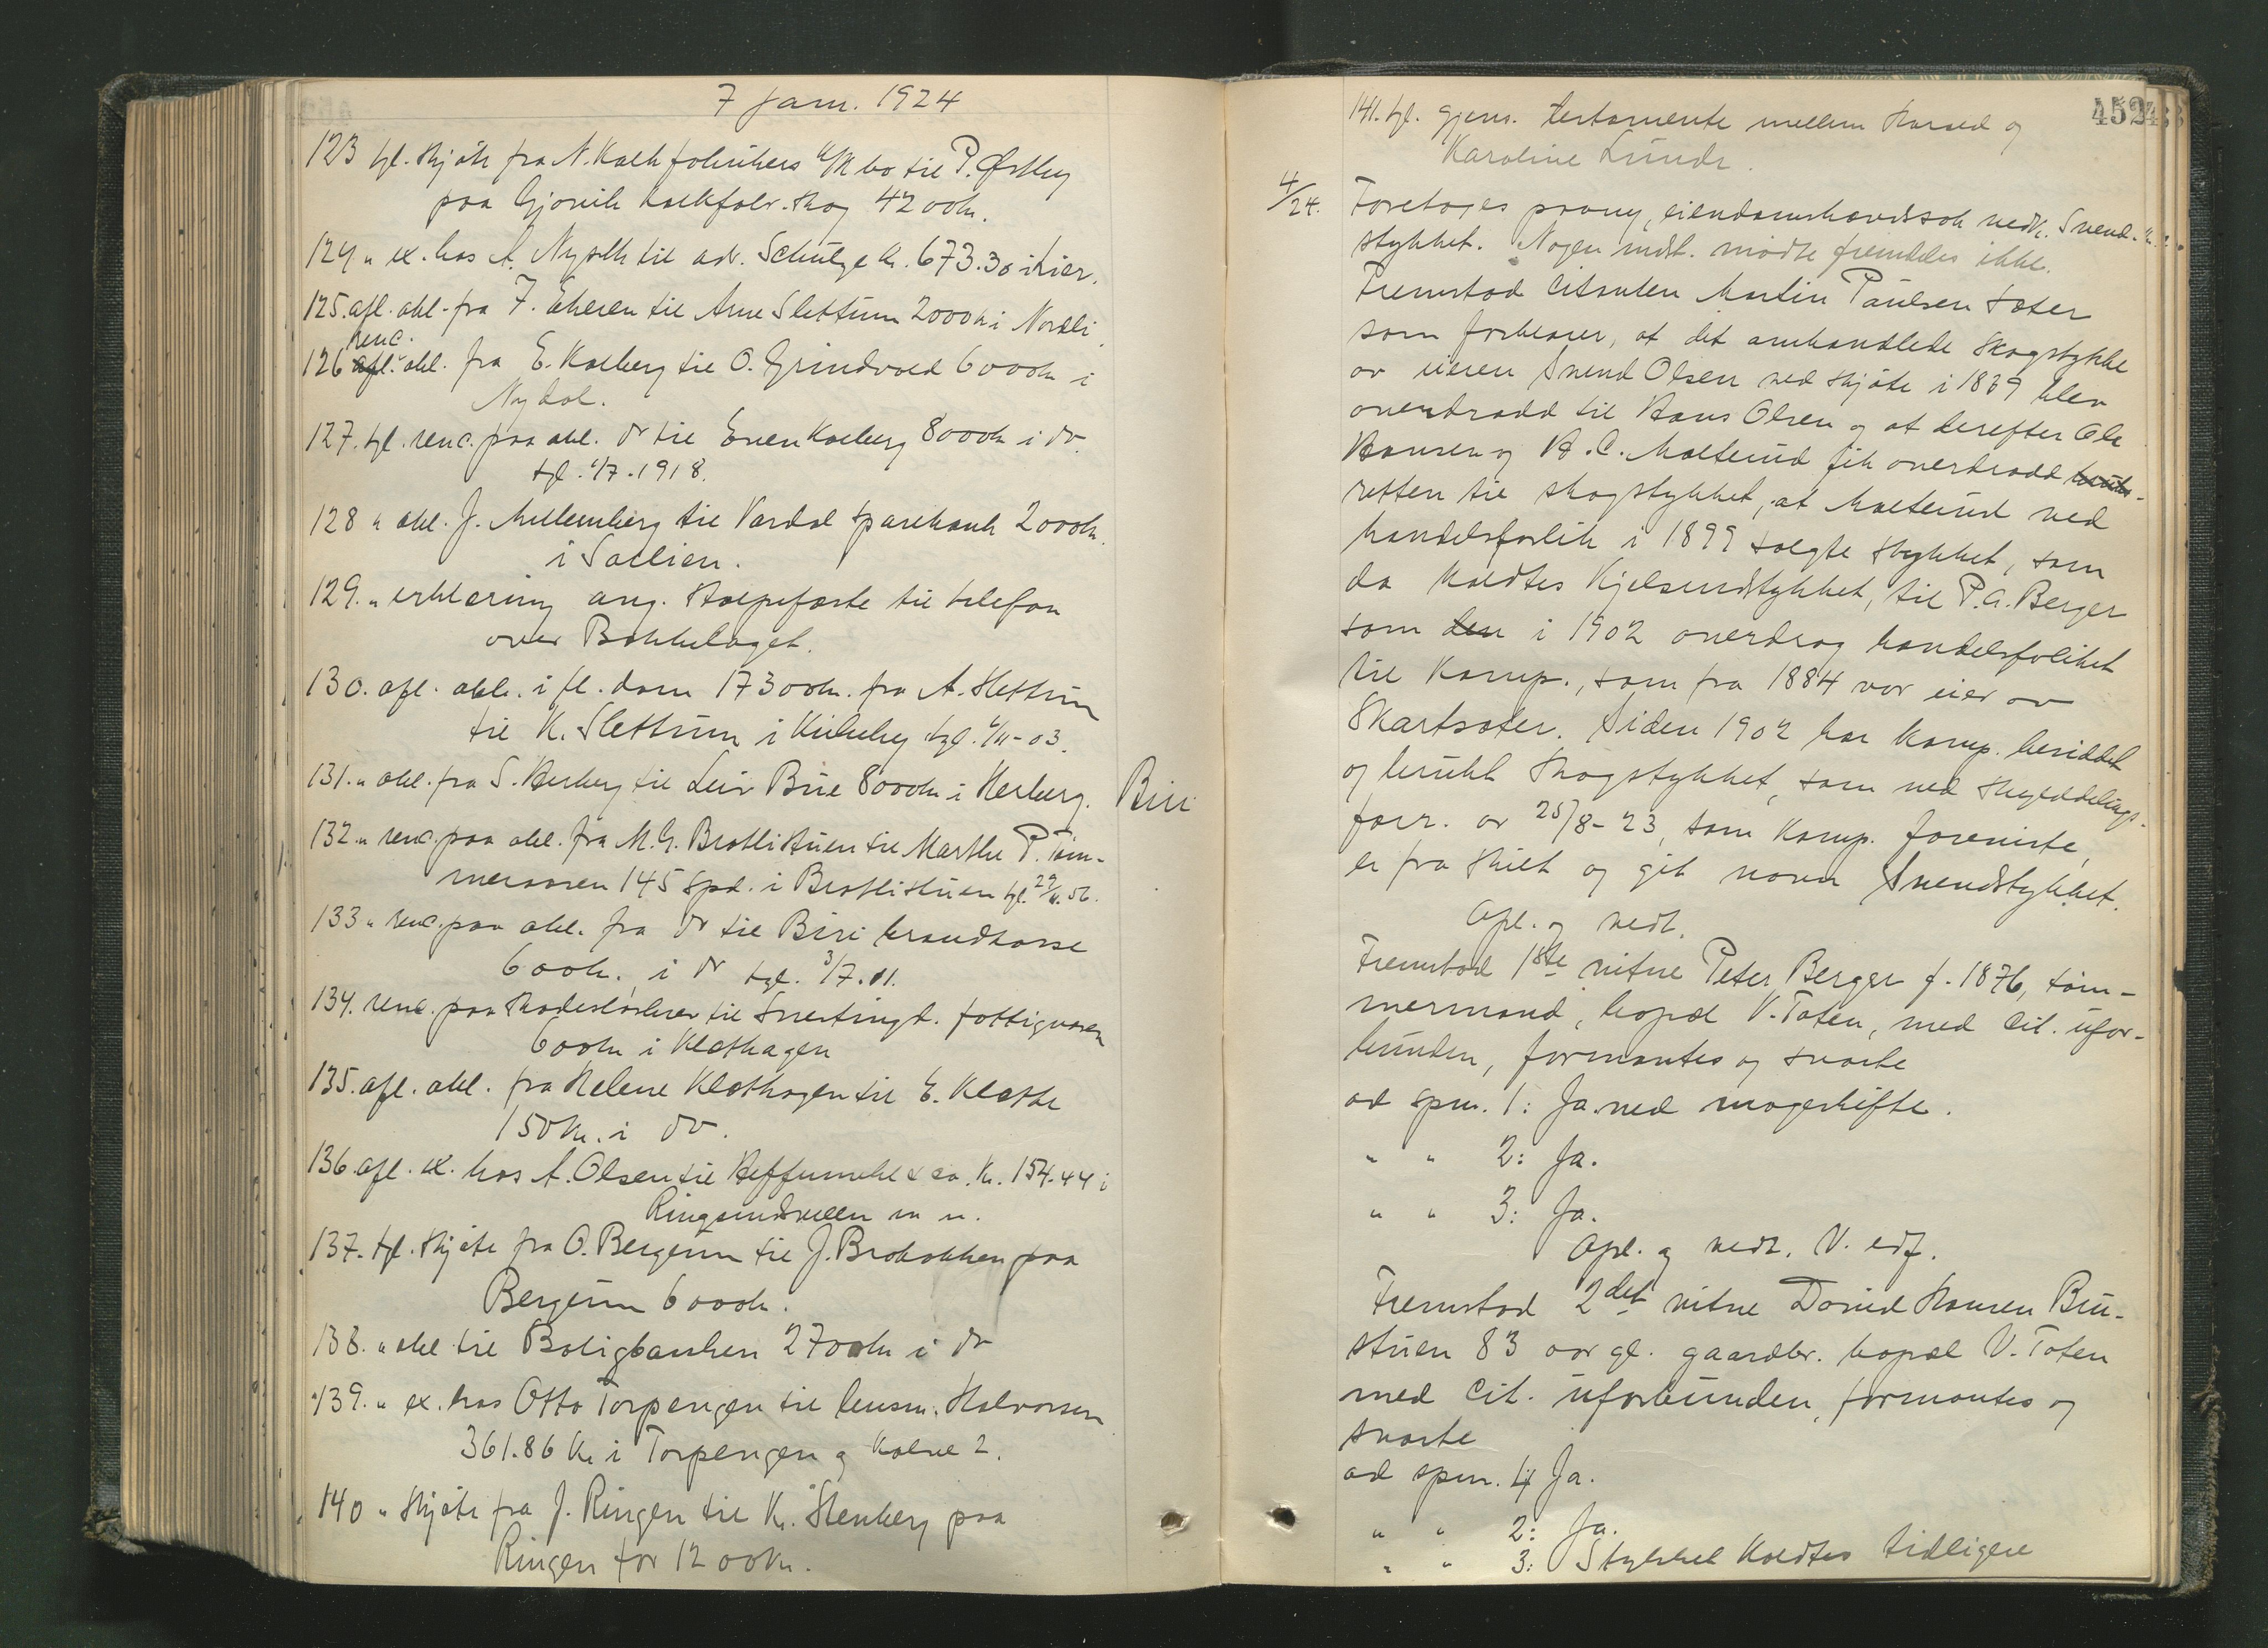 7 jan. 1924
123 tgl. skjöte fra N. Kalkfabrikers bo til P. Østby
paa Gjøvik kalkfabr. skog 4200 kr.
124 " ex. hos A. til adv. Schulze kr. 673.30 i
125. afl. obl. fra F. Ekeren til Arne Slettum 2000 kr i Nordli
renc.
126 afl. obl. fra E. Kalberg til O. Grindvold 6000 kr i
Nydal.
127. tgl. renc. paa obl. do til Even Kalberg 8000 kr i do
tgl. 1/7. 1918.
128 " obl. J. Mellemberg til Vardal sparebank 2000 kr.
i Sollien.
129. " erklæring ang. Stolpefæste til telefon
over Bakkelaget.
130. afl. obl. i fl. dom 17300 kr. fra A. Slettum
til K. Slettum i tgl. -03.
131. " obl. fra S. Herberg til Leir Brie 8000 kr i Herberg. Biri
132. " renc. paa obl. fra M. G. Brotlistuen til Marthe P. Töm-
meraasen 145 Spd. i Brotlistuen tgl. 56.
133 " renc. paa obl. fra do til Biri brandkasse
600 kr. i do tgl. 3/7. 11.
134. renc. paa skadeslösbrev til Snertingd. fattigvæsen
600 kr i Klæthagen
135. afl. obl. fra Helene Klæthagen til E. Klæthe
150 kr. i do.
136 afl. ex. hos A. Olsen til & co. kr. 154.44 i
m m.
137. tgl. skjöte fra O. Bergum til J. Brobakken paa
Bergum 6000 kr.
138. " obl til Boligbanken 2700 kr i do
139. " ex. hos Otto Torpengen til lensm. Halvorsen
361.86 kr i Torpengen og Kalve 2.
140 " skjöte fra J. Ringen til K. Stenberg paa
Ringen for 1200 kr.
452
141. tgl. gjens. testamente mellem og
Karoline Lunde.
4/24. Foretages paany, eiendomshævdssak vedk. Svend-
stykket. Nogen indst. mødte fremdeles ikke.
Fremstod citanten Martin Paulsen Sæter
som forklarer, at det omhandlede skogstykke
av eieren Svend Olsen ved skjöte i 1839 blev
overdradd til Hans Olsen og at derefter Ole
Hansen og H. C. Molterud fik overdradd
retten til skogstykket, at Molterud ved
handelsforlik i 1899 solgte stykket, som
da kaldtes Kjelsrudstykket, til P. A. Berger
som den i 1902 overdrog handelsfoliket
til komp., som fra 1884 var eier av
Skartsæter. Siden 1902 har komp. besiddet
og brukt skogstykket, som ved skylddelings-
forr. av 25/8-23, som komp. foreviste,
er fra skilt og git navn Svendstykket.
Opl. og vedt.
Fremstod 1ste vitne Peter Berger f. 1876, töm-
mermand, bopæl V. Toten, med cit. ufor-
bunden, formantes og svarte
ad spm. 1: Ja. ved mageskifte.
" " 2: Ja.
" " 3: Ja.
Opl. og vedt. V. edf.
Fremstod 2det vitne David Hansen Bru-
stuen 83 aar gl. gaardbr. bopæl V. Toten
med cit. uforbunden, formantes og
svarte
ad spm. 1 Ja.
" " 2: Ja.
" " 3: Stykket kaldtes tidligere